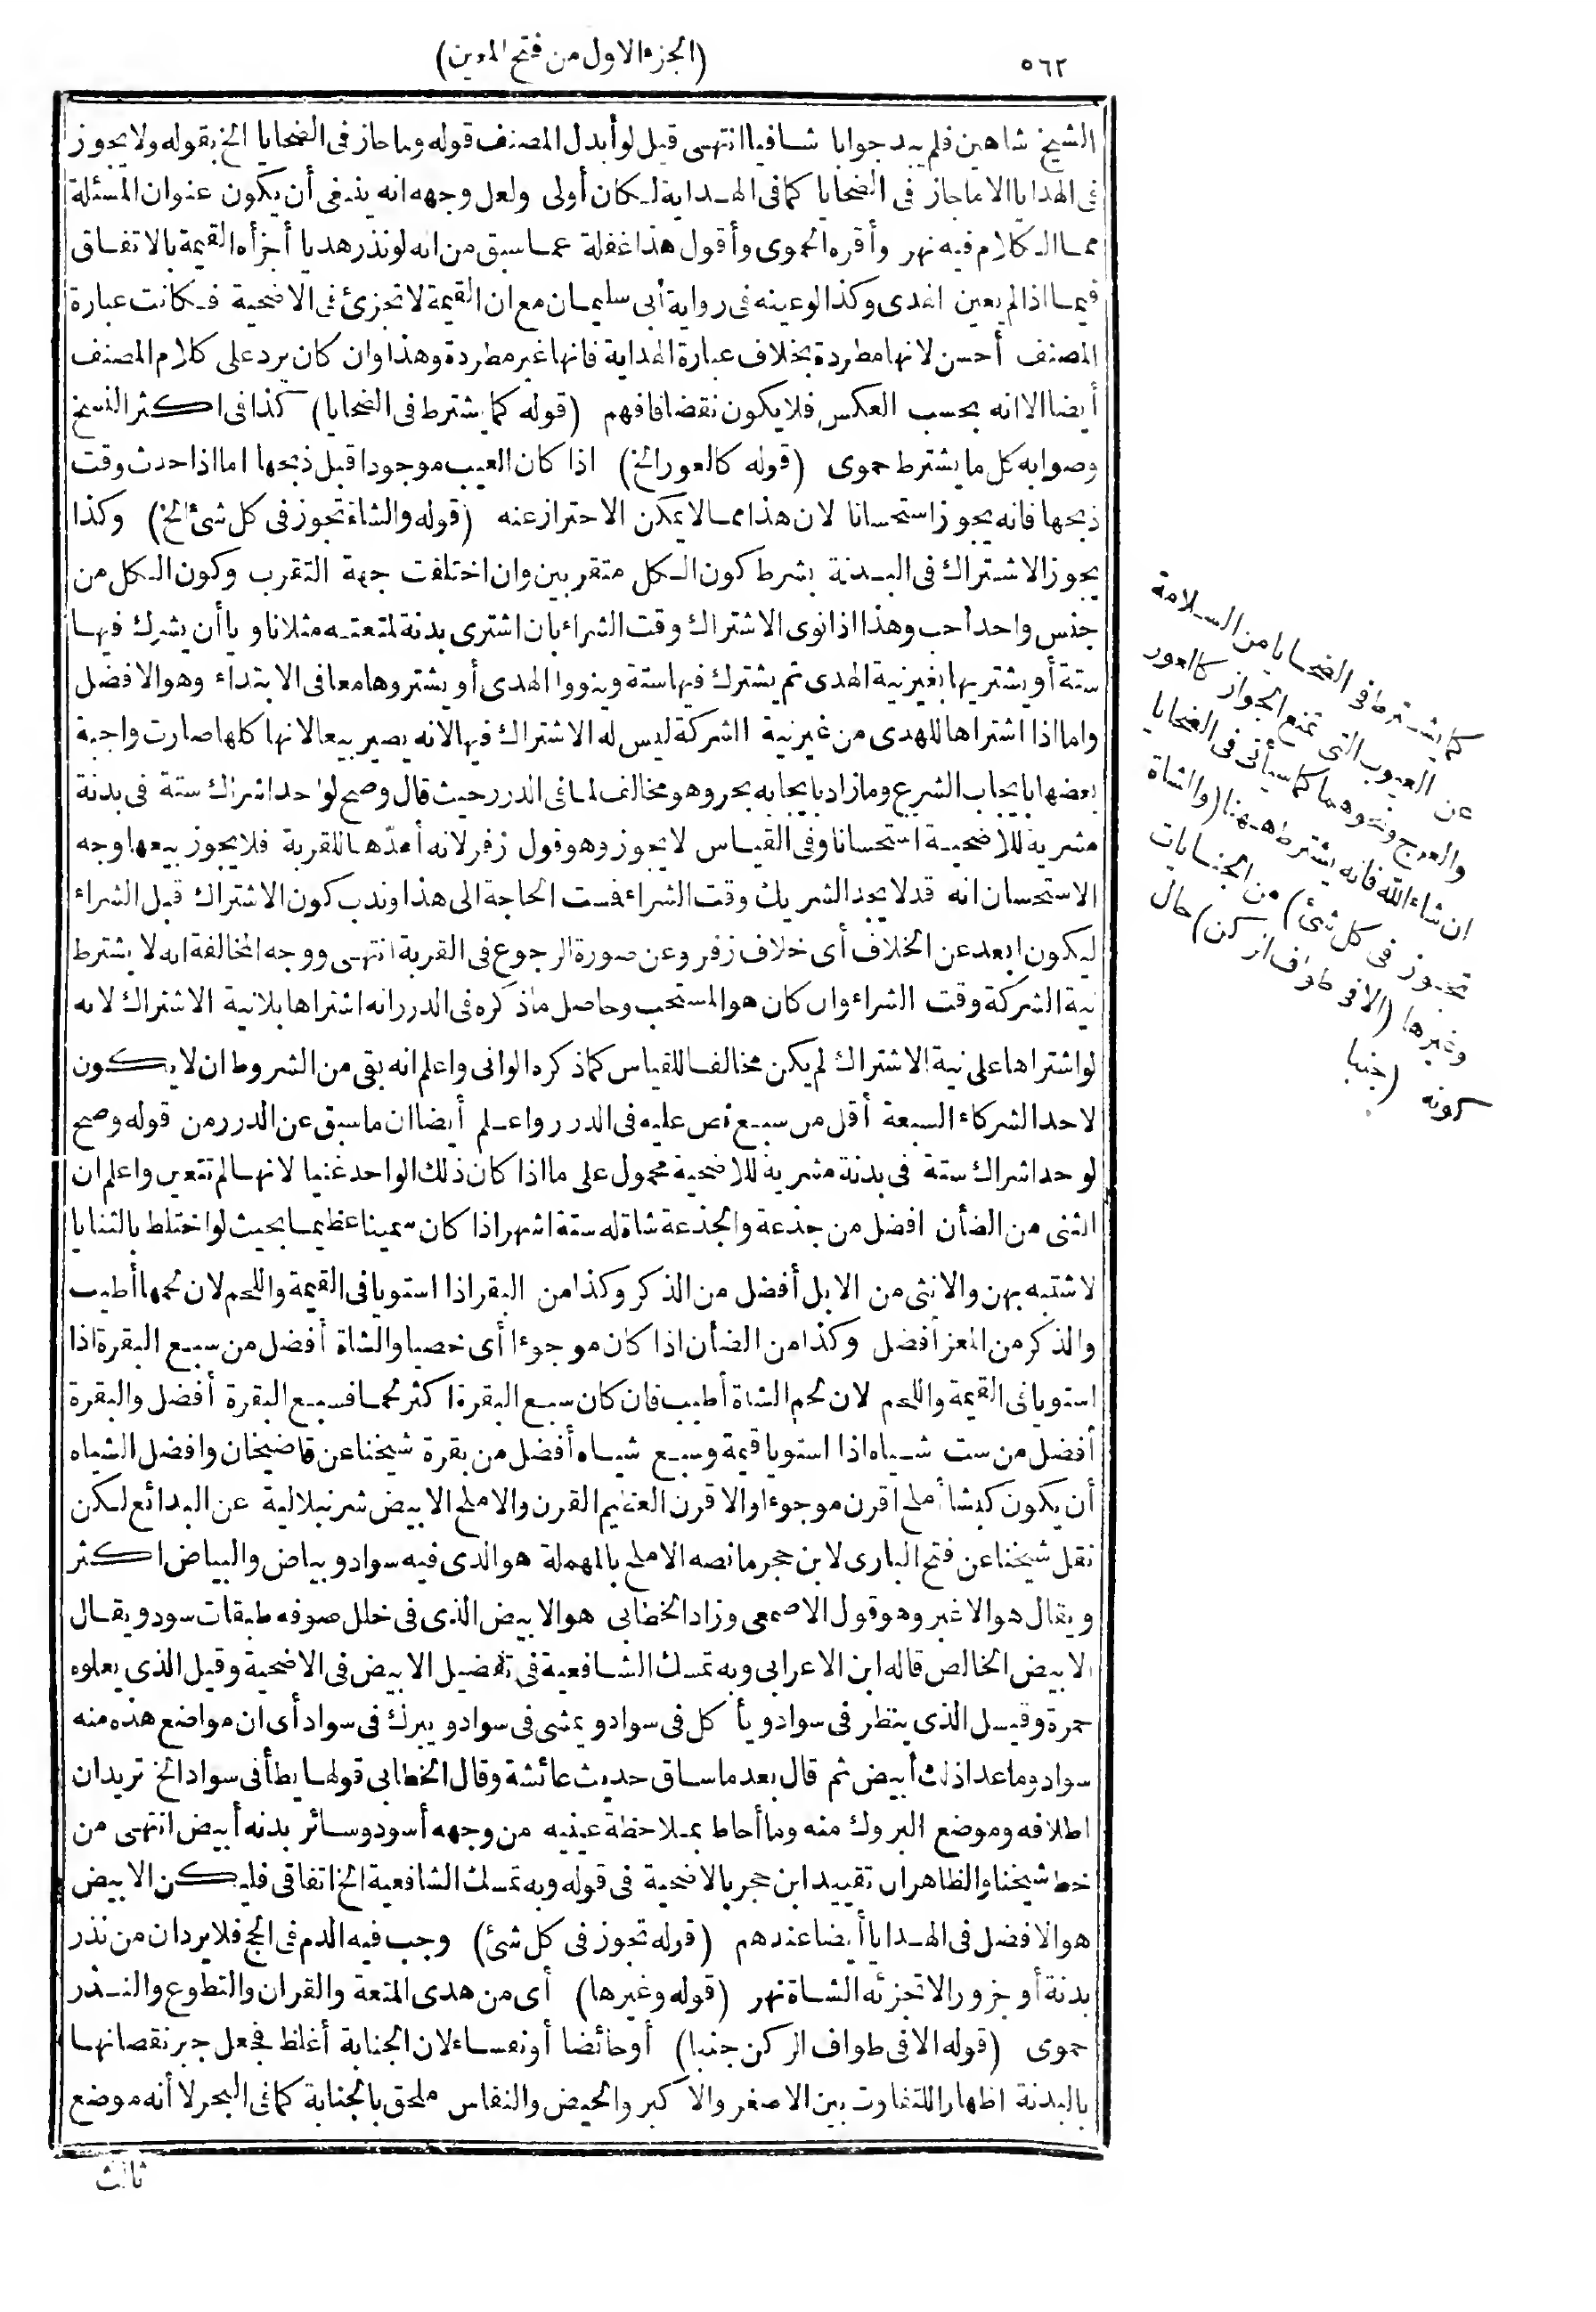 ٥٦٢
(الجزء الاول من فتح المعين)
الشيخ شاهين فلم يبد جوابا شافيا انتهى قيل لو أبدل المصنف قوله وما جاز فى الضحايا الخ بقوله ولا يجوز
فى الهدايا الا ما جاز فى الضحايا كما فى الهداية لكان أولى ولعل وجهه انه ينبغى أن يكون عنوان المسئلة
مما الكلام فيه نهر وأقره الحموى وأقول هذا غفلة عما سبق من انه لو نذر هديا أجزأه القيمة بالاتفاق
فيما اذا لم يعين الهدى وكذا لو عينه فى رواية أبى سليمان مع ان القيمة لا تجزئ فى الاضحية فكانت عبارة
المصنف أحسن لانها مطردة بخلاف عبارة الهداية فانها غير مطردة وهذا وان كان يرد على كلام المصنف
أيضا الا انه بحسب العكس فلا يكون نقضا فافهم (قوله كما يشترط فى الضحايا) كذا فى اكثر النسخ
وصوابه كل ما يشترط حموى (قوله كالعور الخ) اذا كان العيب موجودا قبل ذبحها اما اذا حدث وقت
ذبحها فانه يجوز استحسانا لان هذا مما لا يمكن الاحتراز عنه (قوله والشاة تجوز فى كل شئ الخ) وكذا
يجوز الاشتراك فى البدنة بشرط كون الكل متقربين وان اختلفت جهة التقرب وكون الكل من
جنس واحد أحب وهذا اذا نوى الاشتراك وقت الشراء بان اشترى بدنة لمتعته مثلا ناويا أن يشرك فيها
ستة أو يشتريها بغير نية الهدى ثم يشترك فيها ستة وينووا الهدى أو يشتروها معا فى الابتداء وهو الافضل
واما اذا اشتراها للهدى من غير نية الشركة ليس له الاشتراك فيها لانه يصير بيعا لانها كلها صارت واجبة
بعضها بايجاب الشرع وما زاد بايجابه بحر وهو مخالف لما فى الدرر حيث قال وصح لواحد اشراك ستة فى بدنة
مشرية للاضحية استحسانا وفى القياس لا تجوز وهو قول زفر لانه أعدّها للقربة فلا يجوز بيعها وجه
الاستحسان انه قد لا يجد الشريك وقت الشراء فمست الحاجة الى هذا وندب كون الاشتراك قبل الشراء
ليكون ابعد عن الخلاف أى خلاف زفر وعن صورة الرجوع فى القربة انتهى ووجه المخالفة انه لا يشترط
نية الشركة وقت الشراء وان كان هو المستحب وحاصل ما ذكره فى الدرر انه اشتراها بلا نية الاشتراك لانه
لو اشتراها على نية الاشتراك لم يكن مخالفا للقياس كما ذكره الوانى واعلم انه بقى من الشروط ان لا يكون
لاحد الشركاء السبعة أقل من سبع نص عليه فى الدرر واعلم أيضا ان ما سبق عن الدرر من قوله وصح
لواحد اشراك ستة فى بدنة مشرية للاضحية محمول على ما اذا كان ذلك الواحد غنيا لانها لم تتعين واعلم ان
الثنى من الضأن افضل من جذعة والجذعة شاة له ستة اشهر اذا كان سمينا عظيما بحيث لو اختلط بالثنايا
لاشتبه بهن والانثى من الابل أفضل من الذكر وكذا من البقر اذا استويا فى القيمة واللحم لان لحمها أطيب
والذكر من المعز أفضل وكذا من الضأن اذا كان موجوءا أى خصيا والشاة أفضل من سبع البقرة اذا
استويا فى القيمة واللحم لان لحم الشاة أطيب فان كان سبع البقرة اكثر لحما فسبع البقرة أفضل والبقرة
أفضل من ست شياه اذا استويا قيمة وسبع شياه أفضل من بقرة شيخنا عن قاضيخان وافضل الشياه
أن يكون كبشا أملح اقرن موجوءا والاقرن العظيم القرن والاملح الابيض شرنبلالية عن البدائع لكن
نقل شيخنا عن فتح البارى لابن حجر ما نصه الاملح بالمهملة هو الذى فيه سواد وبياض والبياض اكثر
ويقال هو الاغبر وهو قول الاصمعى وزاد الخطابى هو الابيض الذى فى خلل صوفه طبقات سود ويقال
الابيض الخالص قاله ابن الاعرابى وبه تمسك الشافعية فى تفضيل الابيض فى الاضحية وقيل الذى يعلوه
حمرة وقيل الذى ينظر فى سواد ويأكل فى سواد ويمشى فى سواد ويبرك فى سواد أى ان مواضع هذه منه
سواد وما عدا ذلك أبيض ثم قال بعد ما ساق حديث عائشة وقال الخطابى قولها يطأ فى سواد الخ تريد ان
اطلافه وموضع البروك منه وما أحاط بملاحظة عينيه من وجهه أسود وسائر بدنه أبيض انتهى من
خط شيخنا والظاهر ان تقييد ابن حجر بالاضحية فى قوله وبه تمسك الشافعية الخ اتفاقى فليكن الابيض
هو الافضل فى الهدايا أيضا عندهم (قوله تجوز فى كل شئ) وجب فيه الدم فى الحج فلا يرد ان من نذر
بدنة أو جزورا لا تجزئه الشاة نهر (قوله وغيرها) أى من هدى المتعة والقران والتطوع والنذر
حموى (قوله الا فى طواف الركن جنبا) أو حائضا أو نفساء لان الجنابة أغلظ فجعل جبر نقصانها
بالبدنة اظهارا للتفاوت بين الاصغر والاكبر والحيض والنفاس ملحق بالجنابة كما فى البحر لا أنه موضع
ثالث
كما يشترط فى الضحايا من السلامة
عن العيوب التى تمنع الجواز كالعور
والعرج ونحوهما كما سيأتى فى الضحايا
ان شاء الله فانه يشترط ههنا (والشاة
تجوز فى كل شئ) من الجنايات
وغيرها (الا فى طواف الركن) حال
كونه (جنبا